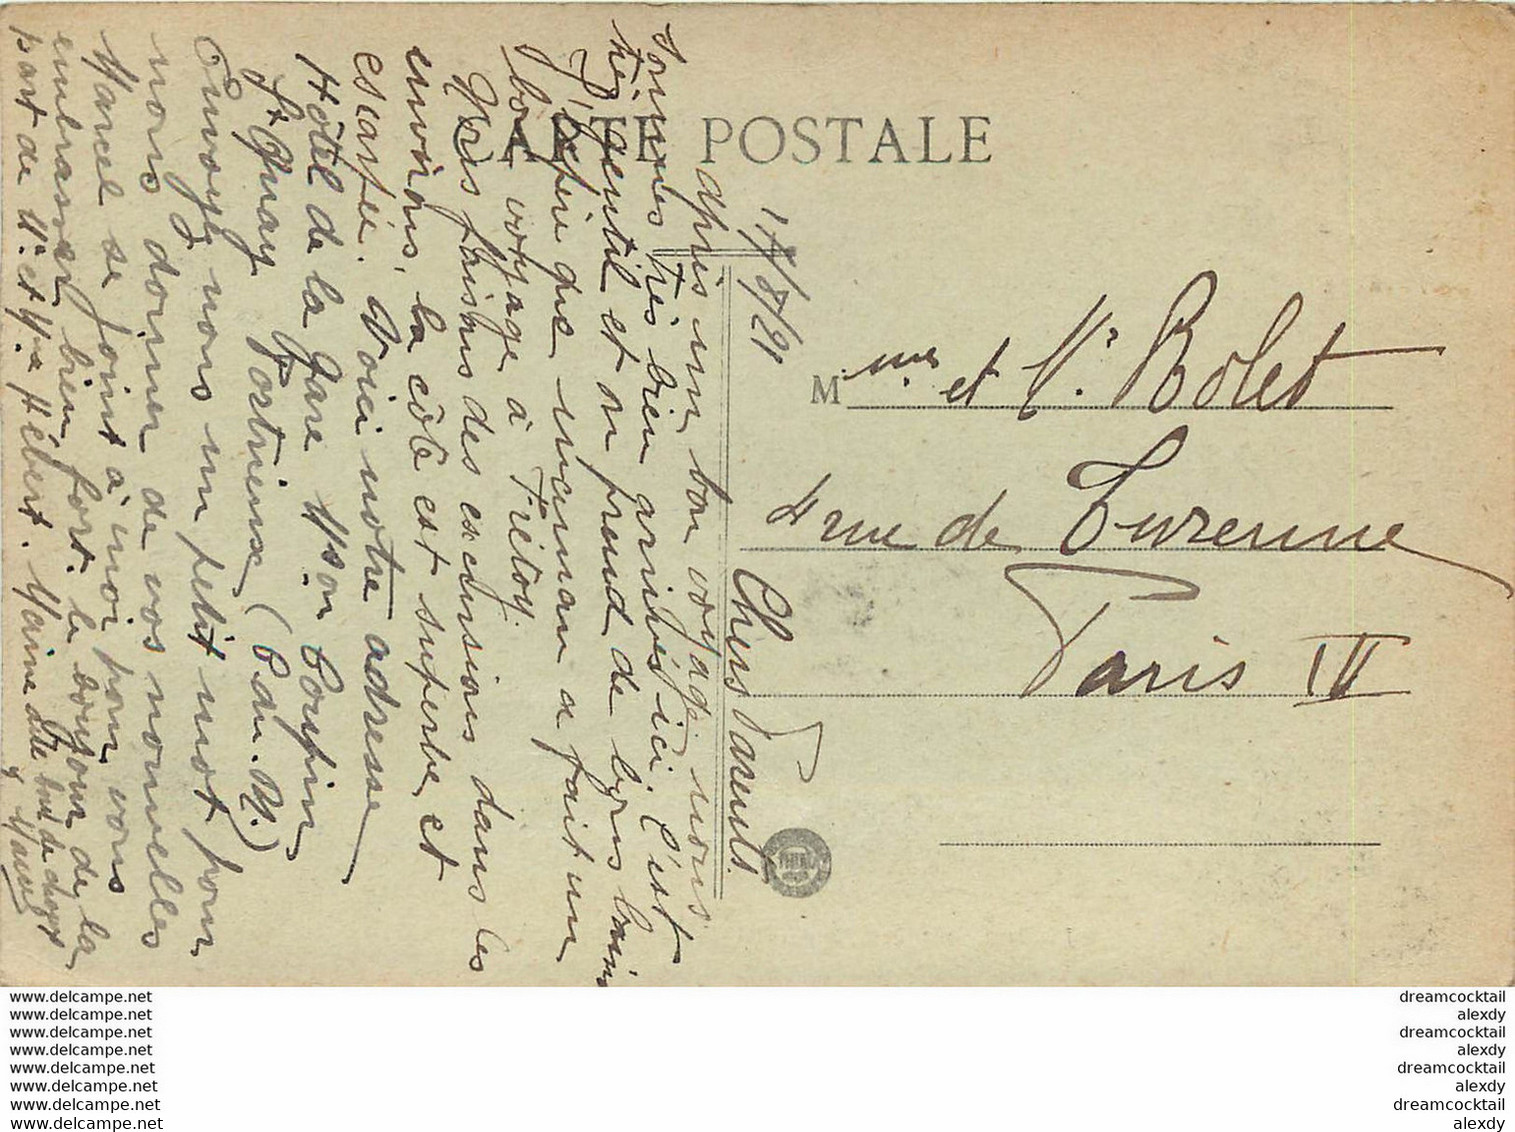 CARTE POSTALE
17/8/21
Chers Parents.
après un bon voyage nous
sommes très bien arrivés ici. C'est
très gentil et on prend de bons bains
J'espère que maman a fait un
bon voyage à Frétoy.
Nous faisons des excursions dans les
environs, la côte est superbe et
escarpée. Voici notre adresse
Hôtel de la Gare Mson Coupin
St Quay Portrieux (C. du. N.)
Envoyez nous un petit mot pour
nous donner de vos nouvelles
Marcel se joint à moi pour vous
embrasser bien fort. le bonjour de la
part de Mr et Mme Hébert.
Mmes et Mr Rolet
4 rue de Turenne
Paris IV
www.delcampe.net
www.delcampe.net
www.delcampe.net
www.delcampe.net
www.delcampe.net
www.delcampe.net
www.delcampe.net
www.delcampe.net
dreamcocktail
alexdy
dreamcocktail
alexdy
dreamcocktail
alexdy
dreamcocktail
alexdy